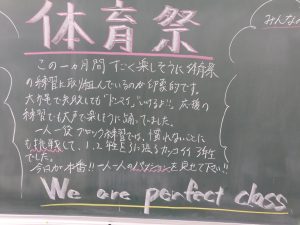 体育祭
みんなの
この一ヵ月間すごく楽しそうに体育祭
の練習に取り組んでいるのが印象的です。
大縄で失敗しても"ドンマイ、いけるよ!"、応援の
練習でも大声で楽しそうに踊ってました。
一人一役 練習では、慣れないことに
も挑戦して、1、2年生を引っ張るカッコイイ3年生
でした。
今日が本番!!一人一人のパッションを見せて下さい!!
We are perfect class